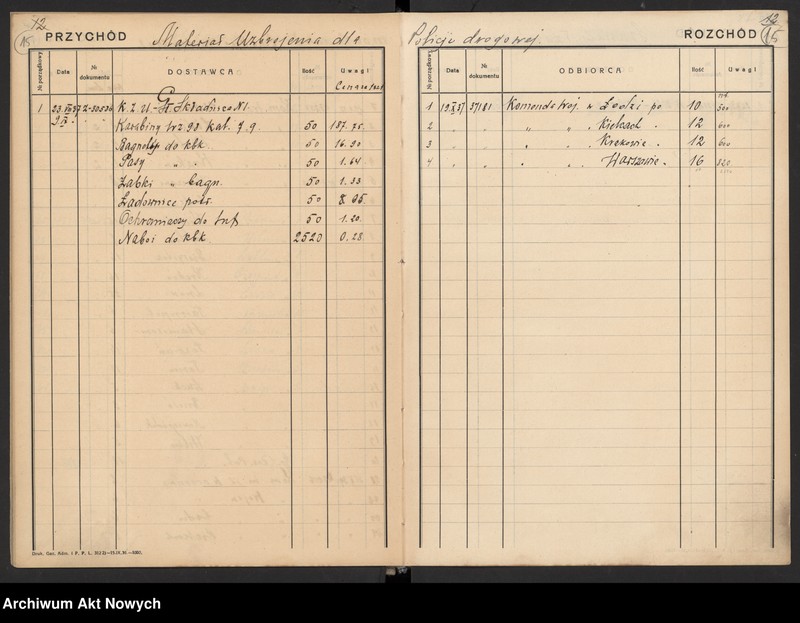 12
15
PRZYCHÓD
Materiał Uzbrojenia dla
№ porządkowy
Data
№ dokumentu
DOSTAWCA
Ilość
Uwagi
1 23. 37 K. Z. U. Gł. Składnica N1.
Karabiny wz 98 kal. 7.9 50 137.75
Bagnety do kbk 50 16.90
Pasy " " 50 1.64
Żabki " bagn. 50 1.33
Ładownice potr. 50 8.05
Ochraniaczy do 50 1.20
Naboi do kbk 2520 0.28
Druk. Gaz. Adm. i P. P.
12
15
Policji drogowej
ROZCHÓD
№ porządkowy
Data
№ dokumentu
ODBIORCA
Ilość
Uwagi
1 19.X.37 37181 Komenda Woj. w Łodzi po 10 500
2 " " " " Kielcach " 12 600
3 " " " " Krakowie " 12 600
4 " " " " Warszawie " 16 820
Archiwum Akt Nowych